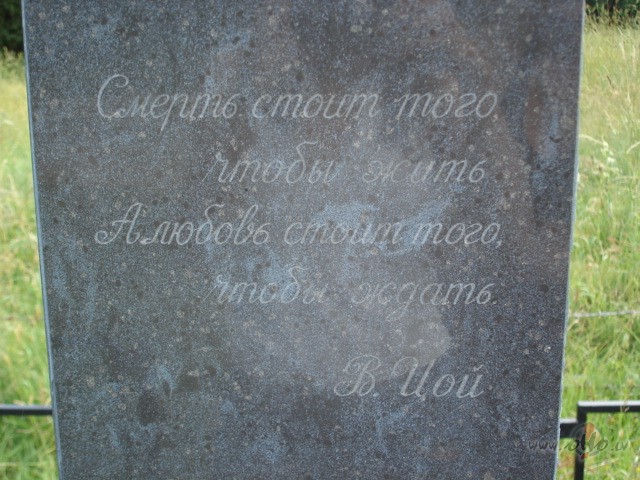 Смерть стоит того
чтобы жить
А любовь стоит того,
чтобы ждать.
В. Цой